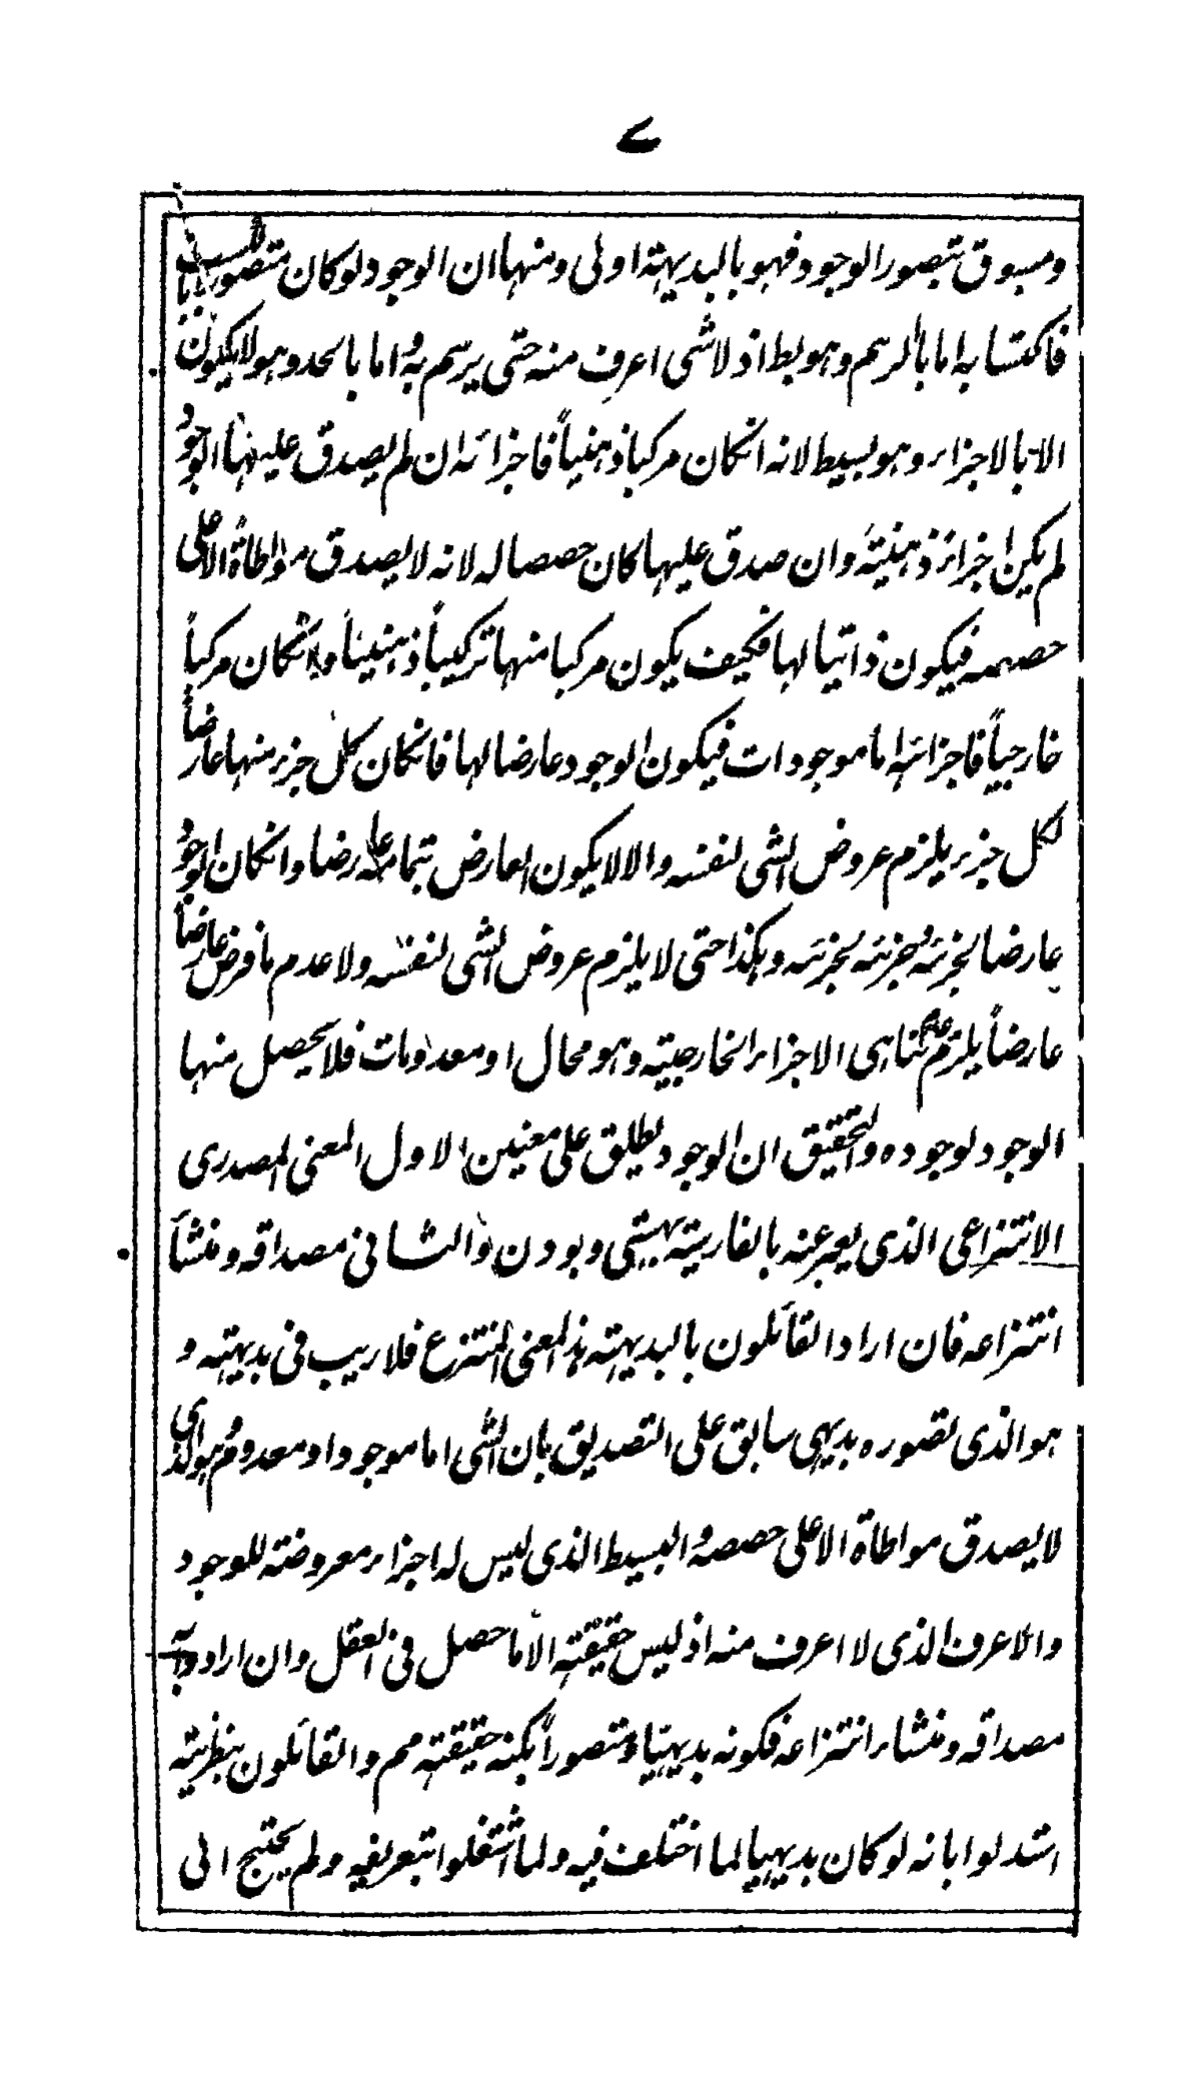 ٧
ومسبوق بتصور الوجود فهو بالبديهة اولى ومنها ان الوجود لو كان متصورا بالكسب
فاكتسابه اما بالرسم وهو بط اذ لا شى اعرف منه حتى يرسم به واما بالحد وهو لا يكون
الا بالاجزاء وهو بسيط لانه انكان مركبا ذهنياً فاجزائه ان لم يصدق عليها الوجود
لم يكن اجزاء ذهنية وان صدق عليها كان حصصا له لانه لا يصدق مواطاة الا على
حصصه فيكون ذاتيا لها فكيف يكون مركبا منها تركيباً ذهنيناً وانكان مركباً
خارجياً فاجزائه اما موجودات فيكون الوجود عارضا لها فانكان كل جزء منها عارضاً
لكل جزء يلزم عروض الشى لنفسه والا لا يكون العارض بتمامه عارضا وانكان الوجود
عارضا لجزئه وجزئه لجزئه وهكذا حتى لا يلزم عروض الشى لنفسه ولا عدم ما فرض عارضاً
عارضاً يلزم عدم تناهى الاجزاء الخارجية وهو محال او معدومات فلا يحصل منها
الوجود لوجوده والتحقيق ان الوجود يطلق على معنيين الاول المعنى المصدرى
الانتزاعى الذى يعبر عنه بالفارسية بهستى وبودن والثانى مصداقه ومنشأ
انتزاعه فان اراد القائلون بالبديهته هذا المعنى المنتزع فلا ريب فى بديهته و
هو الذى تصوره بديهى سابق على التصديق بان الشى اما موجود او معدوم وهو الذى
لا يصدق مواطاة الا على حصصه والبسيط الذى ليس له اجزاء معروضة للوجود
والاعرف الذى لا اعرف منه اذ ليس حقيقته الا ما حصل فى العقل وان ارادوا به
مصداقه ومنشاء انتزاعه فكونه بديهيا ومتصوراً بكنه حقيقته مم والقائلون بنظريته
استدلوا بانه لو كان بديهيا لما اختلف فيه ولما اشتغلوا بتعريفه ولم يحتج الى